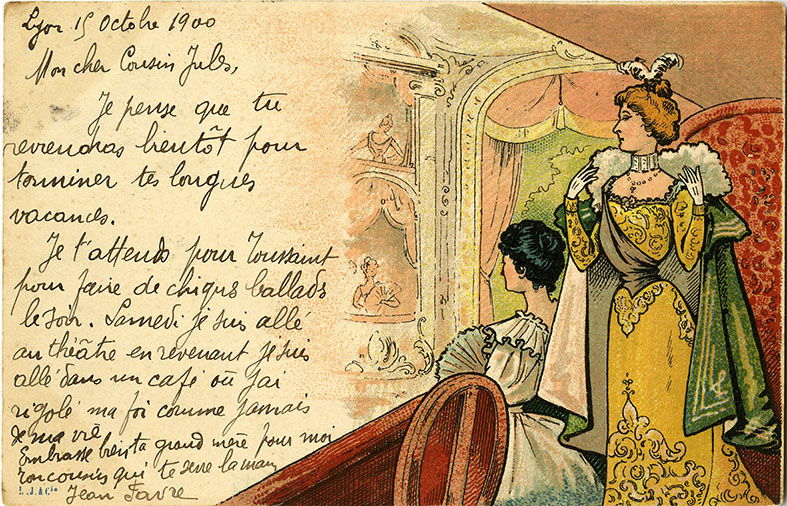 Lyon 15 Octobre 1900
Mon cher Cousin Jules,
Je pense que tu
reviendras bientôt pour
terminer tes longues
vacances.
Je t'attends pour Toussaint
pour faire de chiques ballads
le soir. Samedi je suis allé
au théâtre en revenant je suis
allé dans un café où j'ai
rigolé ma foi comme jamais
de ma vie
Embrasse bien ta grand mère pour moi
ton cousin qui te serre la main
Jean Favre
L. J. & Cie